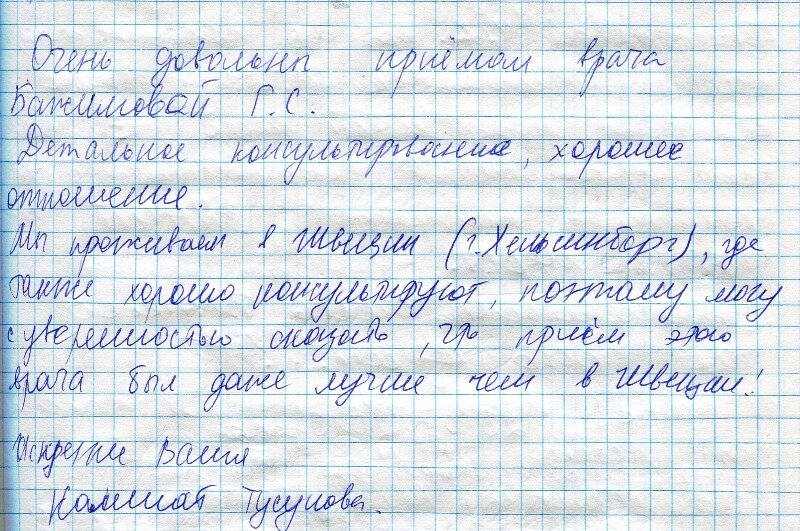 Очень довольны приёмом врача
Бажимовой Г.С.
Детальное консультирование, хорошее
отношение.
Мы проживаем в Швеции (г. Хельсинборг), где
также хорошо консультируют, поэтому могу
с уверенностью сказать, что приём этого
врача был даже лучше чем в Швеции!
Искренне Ваша
Камшат Тусупова.